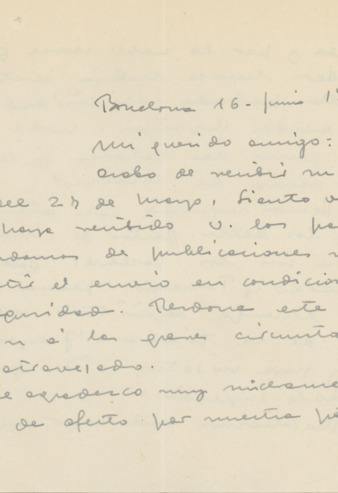 Barcelona 16 - Junio 1
Mi querido amigo:
Acabo de recibir su
del 27 de Mayo, Siento
haya recibido v. los
de publicaciones
el envío en condicion
seguridad. Perdone este
á las graves circunsta
atravesado.
agradezco muy
de afecto por nuestra